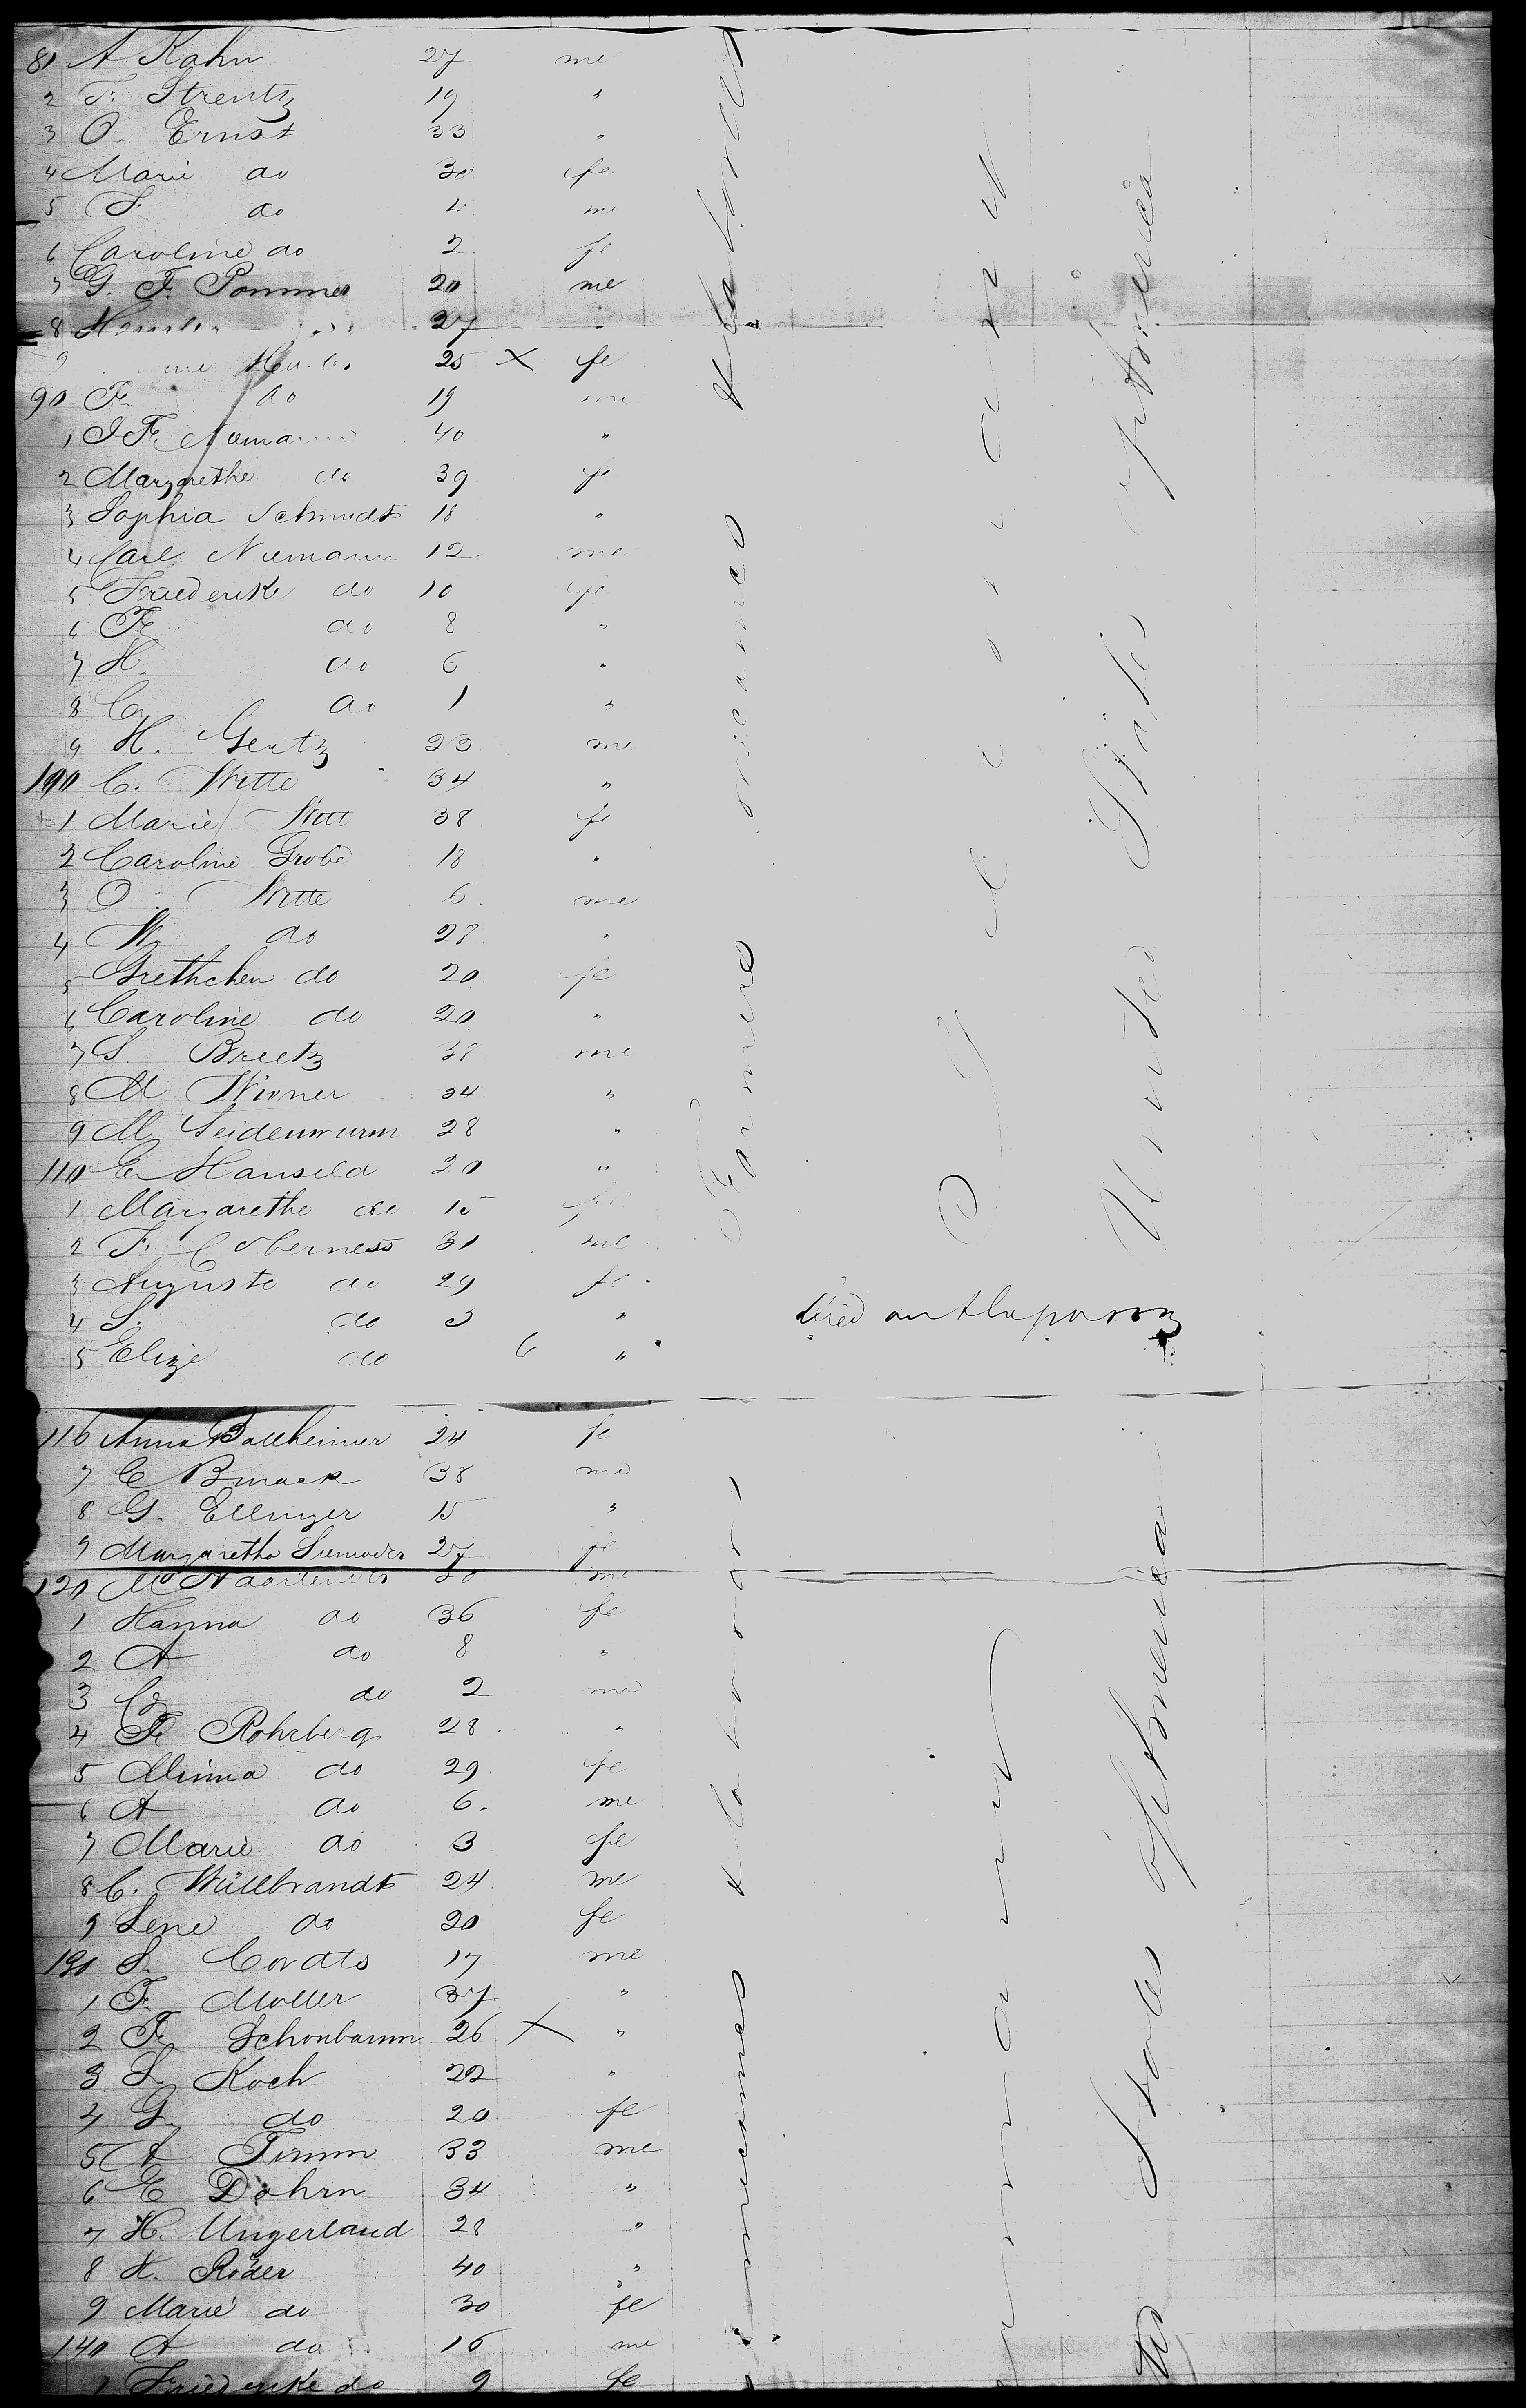 81 A Kahn 27 me
2 F. Strentz 19 "
3 O. Ernst 33 "
4 Marie do 30 fe
5 F do 4 me
6 Caroline do 2 fe
7 G. F. Pommer 20 me
8 27 "
9 25 X fe
90 F. do 19 me
1 J F. Niemann 40 "
2 Margarethe do 39 fe
3 Sophia Schmidt 18 "
4 Carl Niemann 12 me
5 Friederike do 10 fe
6 Fr do 8 "
7 H. do 6 "
8 C. do 1 "
9 H. Gentz 23 me
100 C. Witte 34 "
1 Marie Witt 38 fe
2 Caroline Grobe 18 "
3 O. Witte 6 me
4 W. do 28 "
5 Grethchen do 20 fe
6 Caroline do 20 "
7 S. Breetz 38 me
8 M Wioner 34 "
9 M. Seidenwurm 28 "
110 E. Hauseld 20 "
1 Margarethe do 15 fe
2 F. 31 me
3 Auguste do 29 fe
4 S. do 3 " died on the passag
5 Elize do 6 "
Farmers mecanics & laborers
Germany
United States of America
116 Anna Ballheimer 24 fe
7 C Bmack 38 me
8 G. Ellinger 15 "
9 Margaretha 27 fe
120 M 30 me
1 Hanna do 36 fe
2 A do 8 "
3 C. do 2 me
4 Fr Rohrberg 28 "
5 Minna do 29 fe
6 A do 6 me
7 Marie do 3 fe
8 C. Willbrandt 24 me
9 Lene do 20 fe
130 L. Cordts 17 me
1 F. Moller 37 "
2 Fr Schonbaum 26 X "
3 L. Koch 22 "
4 G. do 20 fe
5 A Timm 33 me
6 E Dohrn 34 "
7 H. Ungerland 28 "
8 H. Röder 40 "
9 Marie do 30 fe
140 A do 16 me
1 Friederike do 9 fe
mecanics & laborers
States of America